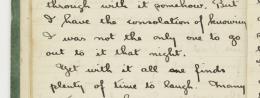 through with it somehow. But
I have the consolation of knowing
I was not the only one to go
out to it that night.
Yet with it all one finds
plenty of time to laugh. Many